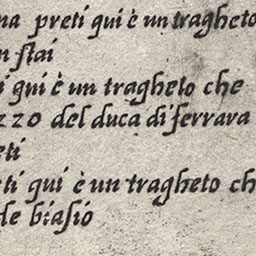 na preti qui è un tragheto
n stai
i qui è un tragheto che
zzo del duca di ferrara
eti
ti qui è un tragheto ch
de biasio